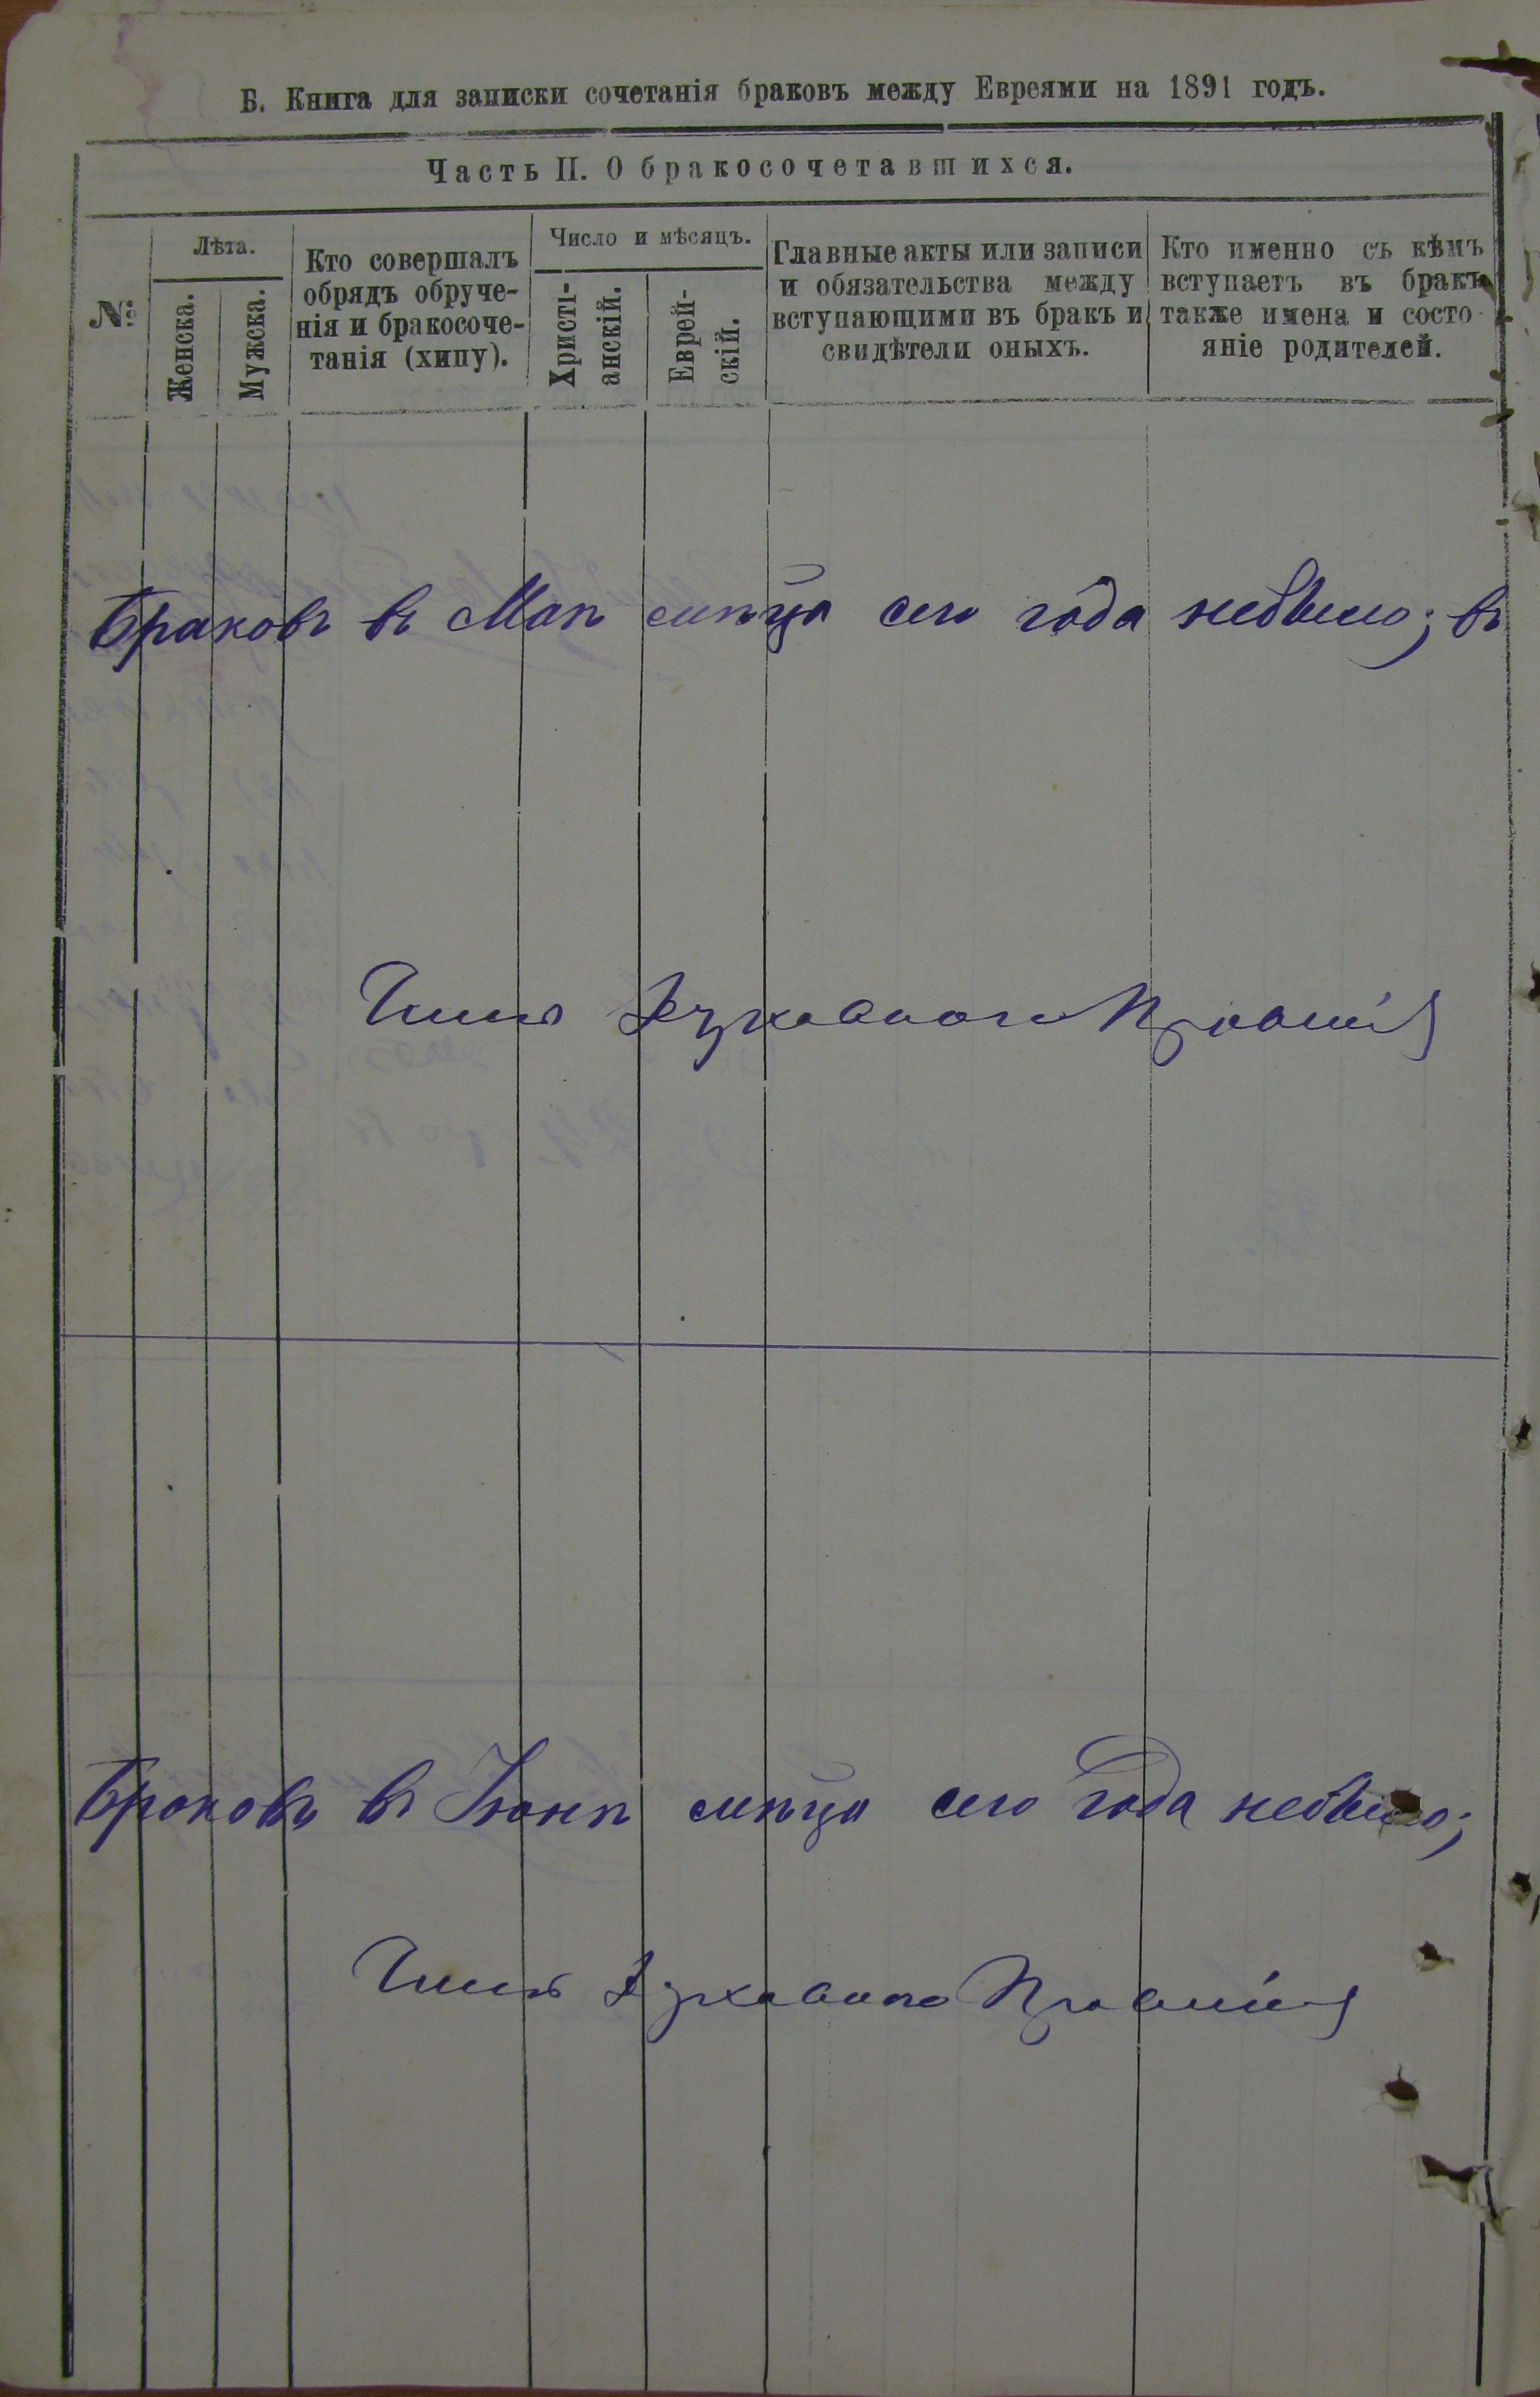 Б. Книга для записки сочетанія браковъ между Евреями на 1891 годъ.
Часть II. О бракосочетавшихся.
№
Лѣта.
Женска.
Мужска.
Кто совершалъ
обрядъ обруче-
нія и бракосоче-
танія (хипу).
Число и мѣсяцъ.
Христі-
анскій.
Еврей-
скій.
Главные акты или записи
и обязательства между
вступающими въ бракъ и
свидѣтели оныхъ.
Кто именно съ кѣмъ
вступаетъ въ бракъ
также имена и состо-
яніе родителей.
Браковъ въ Маѣ мѣсяца сего года небыло; въ
Члены Духовнаго Правленія
Браковъ въ Іюнѣ мѣсяца сего года небыло;
Члены Духовнаго Правленія